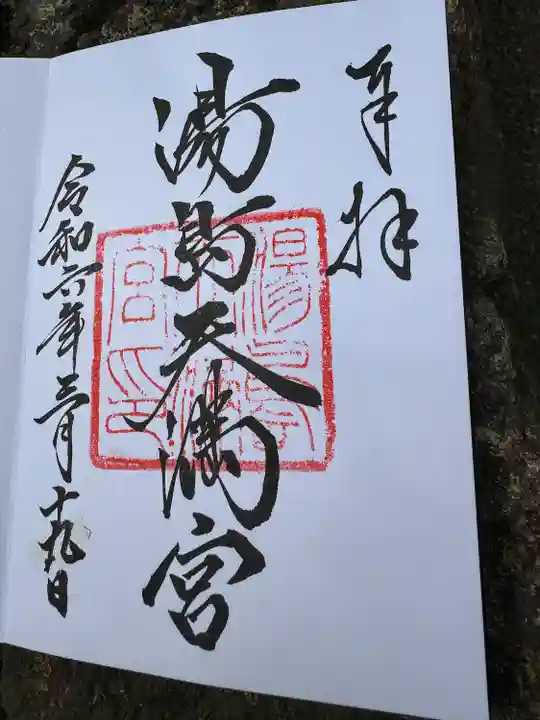 奉拝
湯島天満宮
令和六年三月十九日